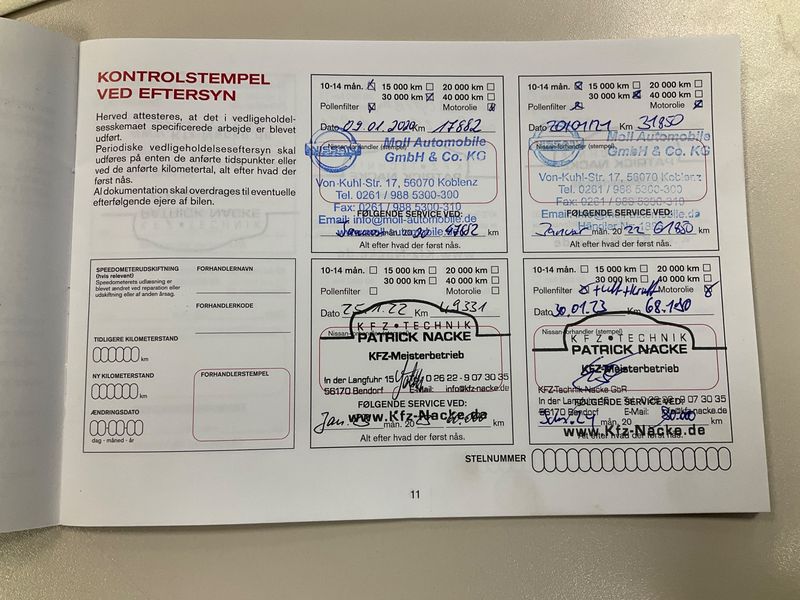 KONTROLSTEMPEL
VED EFTERSYN
Herved attesteres, at det i vedligeholdel-
sesskemaet specificerede arbejde er blevet
udført.
Periodiske vedligeholdelseseftersyn skal
udføres på enten de anførte tidspunkter eller
ved de anførte kilometertal, alt efter hvad der
først nås.
Al dokumentation skal overdrages til eventuelle
efterfølgende ejere af bilen.
SPEEDOMETERUDSKIFTNING
(hvis relevant)
Speedometerets udlæsning er
blevet ændret ved reparation eller
udskiftning eller af anden årsag.
FORHANDLERNAVN
FORHANDLERKODE
TIDLIGERE KILOMETERSTAND
km
NY KILOMETERSTAND
km
FORHANDLERSTEMPEL
ÆNDRINGSDATO
dag - måned - år
10-14 mån. 15 000 km 20 000 km
30 000 km 40 000 km
Pollenfilter Motorolie
Dato 09.01.2020 Km 17682
Nissan-forhandler (stempel)
NISSAN
Moll Automobile
GmbH & Co. KG
Von-Kuhl-Str. 17, 56070 Koblenz
Tel. 0261 / 988 5300-300
Fax: 0261 / 988 5300-310
Email: info@moll-automobile.de
FØLGENDE SERVICE VED:
mån. 20 km
Alt efter hvad der først nås.
10-14 mån. 15 000 km 20 000 km
30 000 km 40 000 km
Pollenfilter Motorolie
Dato Km 31850
Nissan-forhandler (stempel)
Moll Automobile
GmbH & Co. KG
Von-Kuhl-Str. 17, 56070 Koblenz
Tel. 0261 / 988 5300-300
Fax: 0261 / 988 5300-310
FØLGENDE SERVICE VED:
Januar mån. 20 22 61850 km
Alt efter hvad der først nås.
10-14 mån. 15 000 km 20 000 km
30 000 km 40 000 km
Pollenfilter Motorolie
Dato 25.1.22 Km 49331
KFZ•TECHNIK
PATRICK NACKE
KFZ-Meisterbetrieb
In der Langfuhr 15 0 26 22 - 9 07 30 35
56170 Bendorf E-Mail: info@kfz-nacke.de
FØLGENDE SERVICE VED:
www.Kfz-Nacke.de
Jan. 23 mån. 20 km
Alt efter hvad der først nås.
10-14 mån. 15 000 km 20 000 km
30 000 km 40 000 km
Pollenfilter Motorolie
Dato 30.01.23 Km 68.150
Nissan-forhandler (stempel)
KFZ•TECHNIK
PATRICK NACKE
KFZ-Meisterbetrieb
KFZ-Technik Nacke GbR
In der Langfuhr 15 Tel: 0 26 22 - 9 07 30 35
56170 Bendorf E-Mail: info@kfz-nacke.de
FØLGENDE SERVICE VED:
mån. 20 80.000 km
www.Kfz-Nacke.de
Alt efter hvad der først nås.
STELNUMMER
11